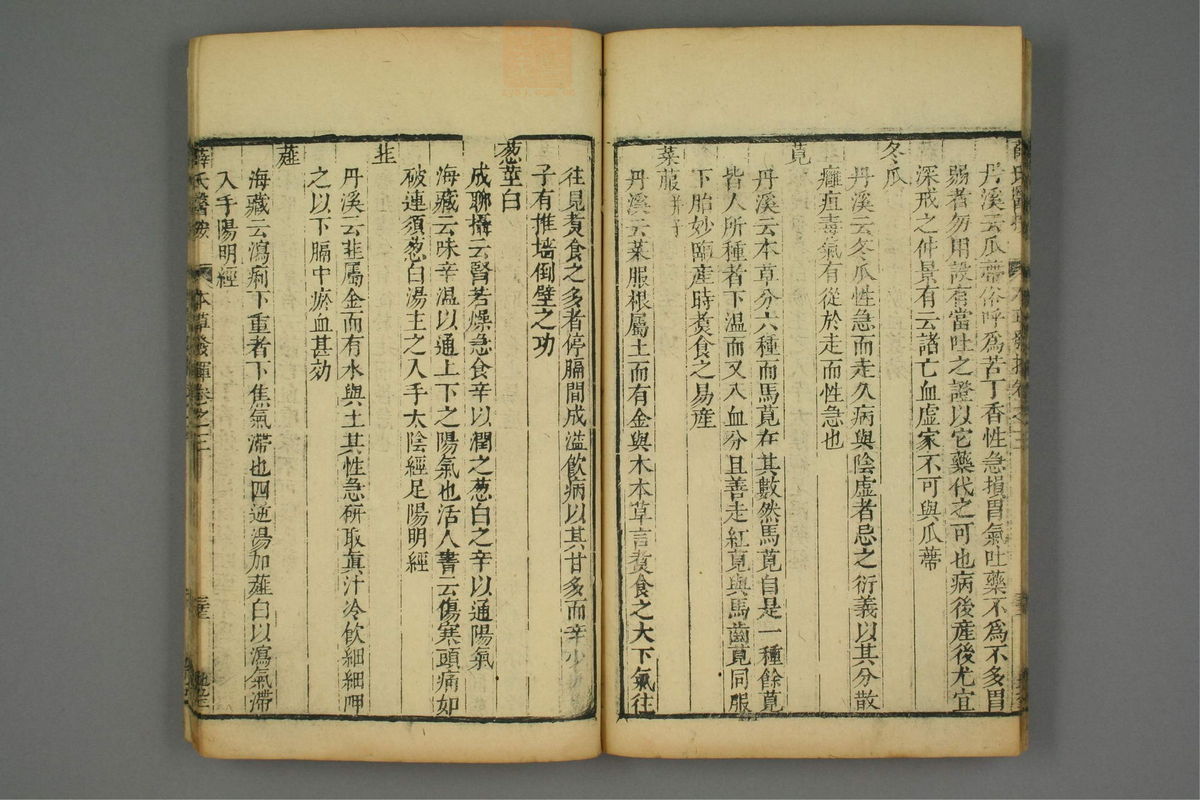 丹溪云瓜蔕俗呼爲苦丁香性急損胃氣吐藥不爲不多胃
弱者勿用設有當吐之證以它藥代之可也病後產後尤宜
深戒之仲景有云諸亡血虛家不可與瓜蔕
冬瓜
丹溪云冬瓜性急而走久病與陰虛者忌之衍義以其分散
癰疽毒氣有從於走而性急也
莧
丹溪云本草分六種而馬莧在其數然馬莧自是一種餘莧
皆人所種者下溫而又入血分且善走紅莧與馬齒莧同服
下胎妙臨產時煑食之易產
萊菔
丹溪云萊服根屬土而有金與木本草言煑食之大下氣往
往見煑食之多者停膈間成溢飲病以其甘多而辛少
子有推墻倒壁之功
葱莖白
成聊攝云腎若燥急食辛以潤之葱白之辛以通陽氣
海藏云味辛溫以通上下之陽氣也活人書云傷寒頭痛如
破連須葱白湯主之入手太陰經足陽明經
韭
丹溪云韭屬金而有水與土其性急研取眞汁冷飲細細呷
之以下膈中瘀血甚効
薤
海藏云瀉痢下重者下焦氣滯也四逆湯加薤白以瀉氣滯
入手陽明經
薛氏醫按 本草發揮卷之三